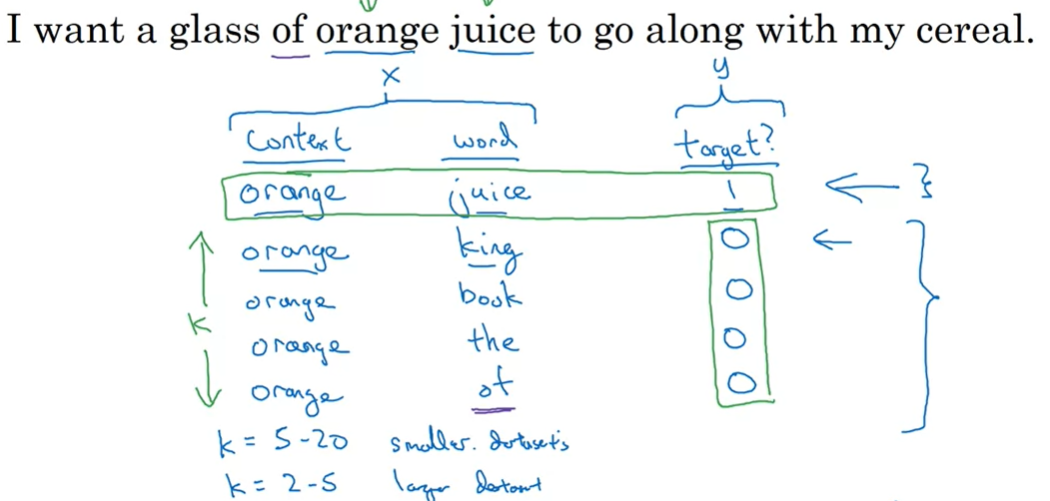 I want a glass of orange juice to go along with my cereal.
x y
Context word target?
orange juice 1
orange king 0
orange book 0
orange the 0
orange of 0
k
k = 5-20 smaller datasets
k = 2-5 larger dataset